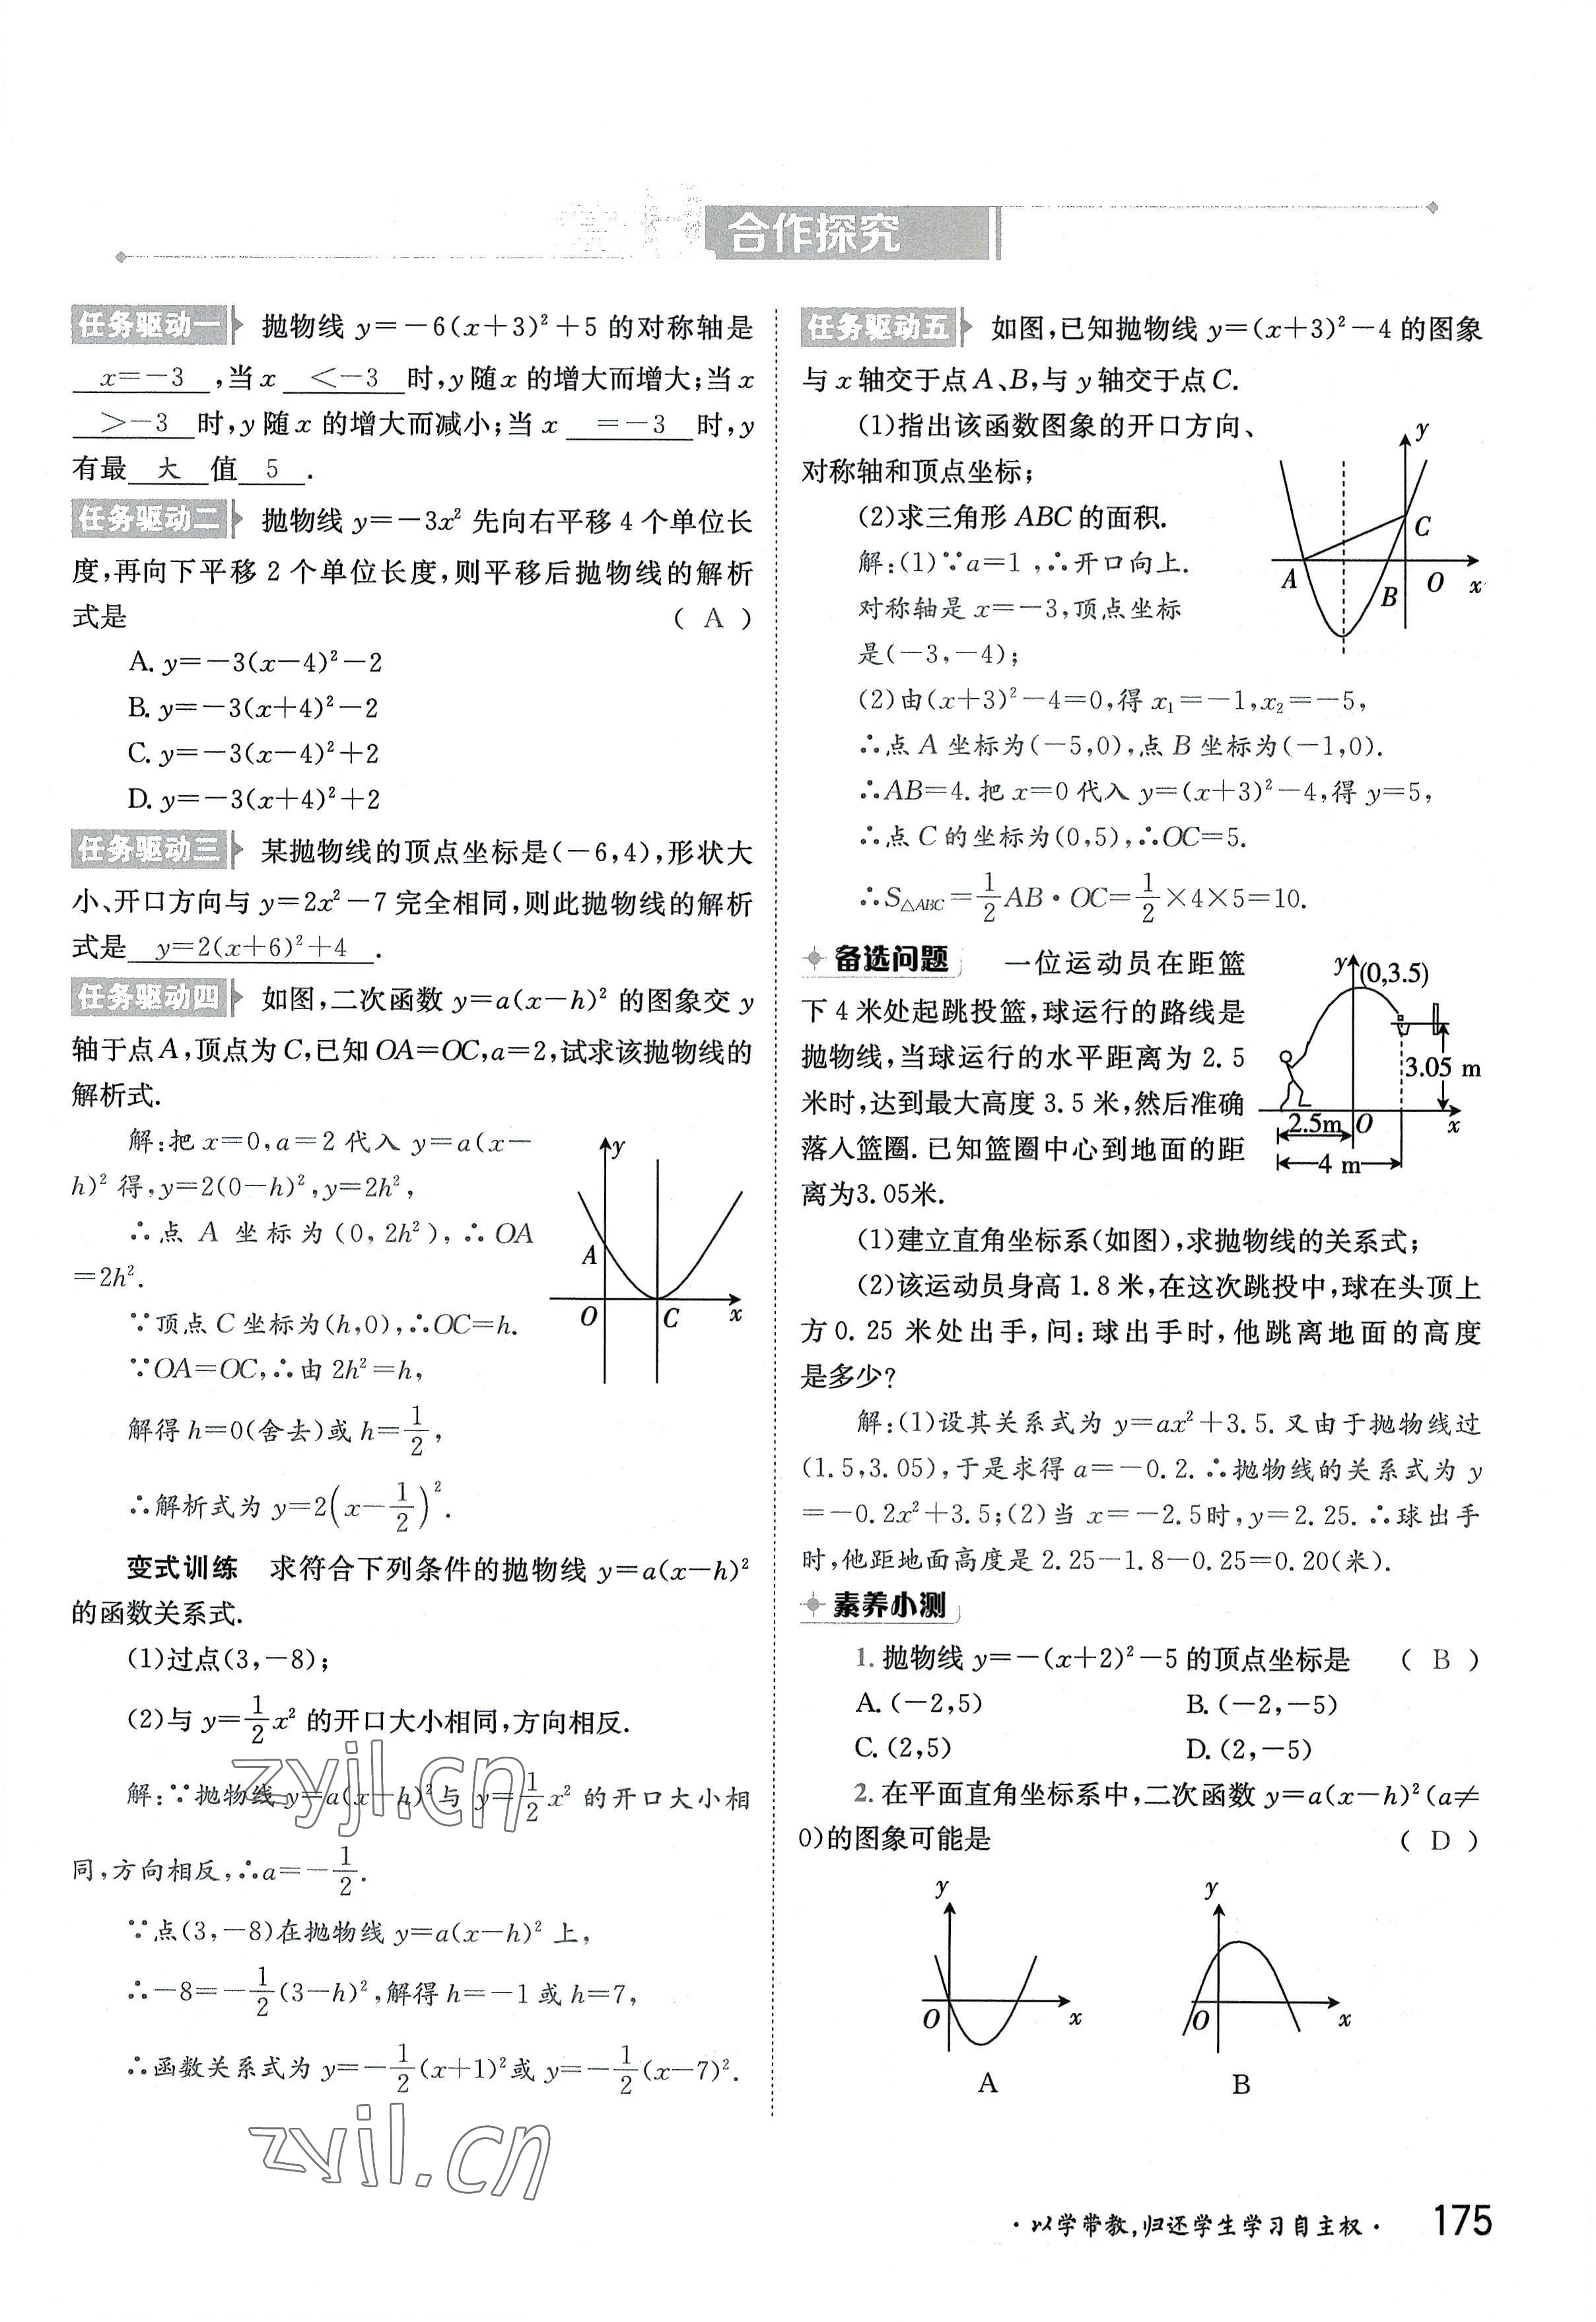 合作探究
任务驱动一 抛物线 y=-6(x+3)²+5 的对称轴是
x=-3 ,当 x <-3 时,y 随 x 的增大而增大;当 x
>-3 时,y 随 x 的增大而减小;当 x =-3 时,y
有最 大 值 5 .
任务驱动二 抛物线 y=-3x² 先向右平移 4 个单位长
度,再向下平移 2 个单位长度,则平移后抛物线的解析
式是 ( A )
A. y=-3(x-4)²-2
B. y=-3(x+4)²-2
C. y=-3(x-4)²+2
D. y=-3(x+4)²+2
任务驱动三 某抛物线的顶点坐标是(-6,4),形状大
小、开口方向与 y=2x²-7 完全相同,则此抛物线的解析
式是 y=2(x+6)²+4 .
任务驱动四 如图,二次函数 y=a(x-h)² 的图象交 y
轴于点 A,顶点为 C,已知 OA=OC,a=2,试求该抛物线的
解析式.
解:把 x=0,a=2 代入 y=a(x-
h)² 得,y=2(0-h)²,y=2h²,
∴点 A 坐标为(0,2h²),∴OA
=2h².
∵顶点 C 坐标为(h,0),∴OC=h.
∵OA=OC,∴由 2h²=h,
解得 h=0(舍去)或 h=1/2,
∴解析式为 y=2(x-1/2)².
y
A
O
C
x
变式训练 求符合下列条件的抛物线 y=a(x-h)²
的函数关系式.
(1)过点(3,-8);
(2)与 y=1/2x² 的开口大小相同,方向相反.
解:∵抛物线 y=a(x-h)²与 y=1/2x² 的开口大小相
同,方向相反,∴a=-1/2.
∵点(3,-8)在抛物线 y=a(x-h)² 上,
∴-8=-1/2(3-h)²,解得 h=-1 或 h=7,
∴函数关系式为 y=-1/2(x+1)²或 y=-1/2(x-7)².
zyjl.cn
zyjl.cn
任务驱动五 如图,已知抛物线 y=(x+3)²-4 的图象
与 x 轴交于点 A、B,与 y 轴交于点 C.
(1)指出该函数图象的开口方向、
对称轴和顶点坐标;
(2)求三角形 ABC 的面积.
解:(1)∵a=1,∴开口向上.
对称轴是 x=-3,顶点坐标
是(-3,-4);
(2)由(x+3)²-4=0,得 x₁=-1,x₂=-5,
∴点 A 坐标为(-5,0),点 B 坐标为(-1,0).
∴AB=4.把 x=0 代入 y=(x+3)²-4,得 y=5,
∴点 C 的坐标为(0,5),∴OC=5.
∴S△ABC=1/2AB·OC=1/2×4×5=10.
y
C
A
B
O
x
备选问题 一位运动员在距篮
下 4 米处起跳投篮,球运行的路线是
抛物线,当球运行的水平距离为 2.5
米时,达到最大高度 3.5 米,然后准确
落入篮圈.已知篮圈中心到地面的距
离为3.05米.
y
(0,3.5)
3.05 m
2.5m
O
x
4 m
(1)建立直角坐标系(如图),求抛物线的关系式;
(2)该运动员身高 1.8 米,在这次跳投中,球在头顶上
方0.25 米处出手,问:球出手时,他跳离地面的高度
是多少?
解:(1)设其关系式为 y=ax²+3.5.又由于抛物线过
(1.5,3.05),于是求得 a=-0.2.∴抛物线的关系式为 y
=-0.2x²+3.5;(2)当 x=-2.5时,y=2.25.∴球出手
时,他距地面高度是 2.25-1.8-0.25=0.20(米).
素养小测
1. 抛物线 y=-(x+2)²-5 的顶点坐标是 ( B )
A. (-2,5) B. (-2,-5)
C. (2,5) D. (2,-5)
2. 在平面直角坐标系中,二次函数 y=a(x-h)²(a≠
0)的图象可能是 ( D )
y
O
x
A
y
O
x
B
·以学带教,归还学生学习自主权· 175